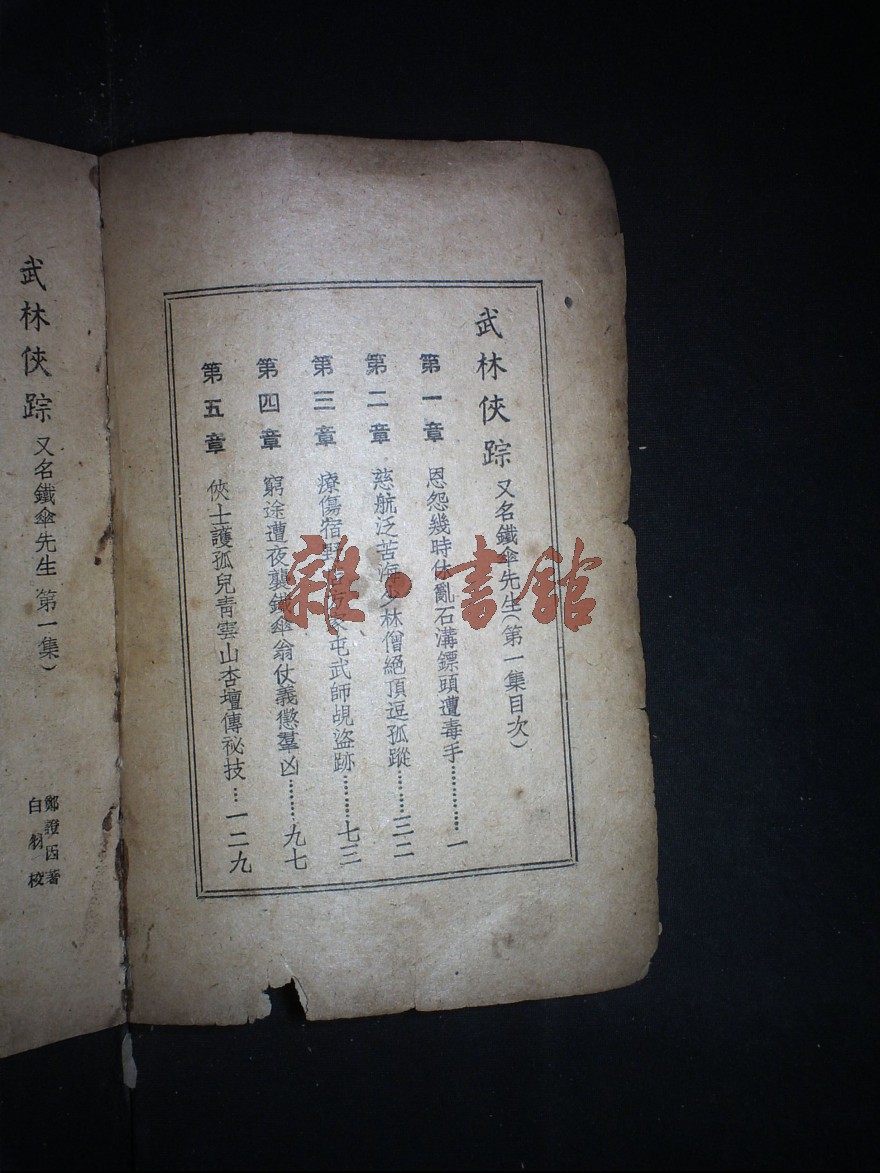 武林俠踪 又名鐵傘先生(第一集目次)
第一章 恩怨幾時休亂石溝鏢頭遭毒手…………一
第二章 慈航泛苦海少林僧絕頂逗孤蹤………三二
第三章 療傷宿野家屯武師覘盜跡………七三
第四章 窮途遭夜襲鐵傘翁仗義懲羣凶………九七
第五章 俠士護孤兒青雲山杏壇傳祕技…一二九
武林俠踪 又名鐵傘先生 第一集)
鄭證因著
白羽校
雜·書館